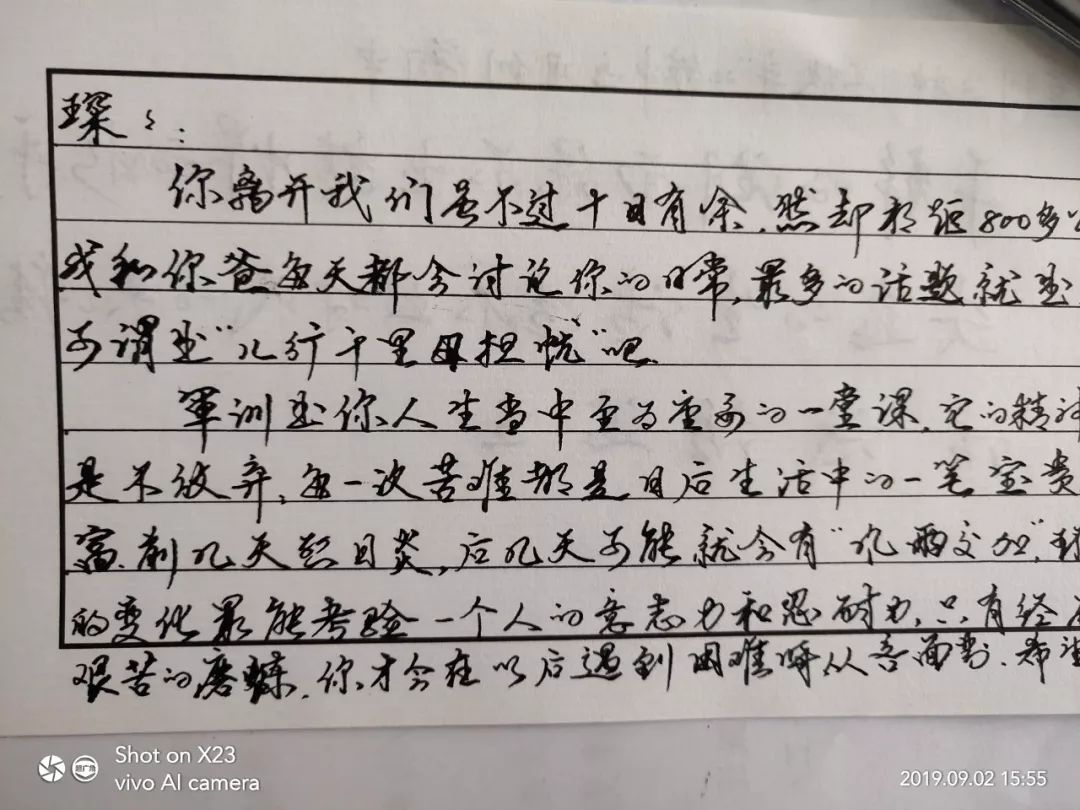 琛琛:
你离开我们虽不过十日有余,然却相距800多
我和你爸每天都会讨论你的日常,最多的话题就是
可谓是“儿行千里母担忧”吧.
军训是你人生当中至为重要的一堂课,它的精神
是不放弃,每一次苦难都是日后生活中的一笔宝贵
富.前几天烈日炎,后几天可能就会有“风雨交加”,
的变化最能考验一个人的意志力和忍耐力,只有经
艰苦的磨炼,你才会在以后遇到困难时从容面对.希望
Shot on X23
vivo AI camera
超广角
2019.09.02 15:55